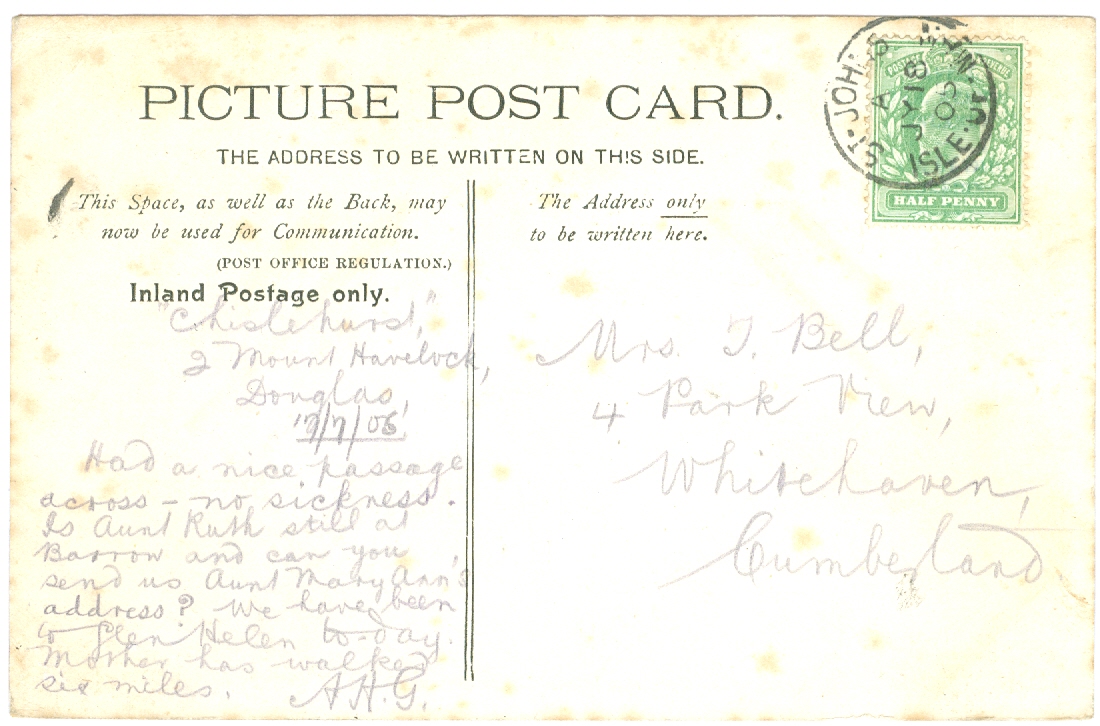 PICTURE POST CARD.
THE ADDRESS TO BE WRITTEN ON THIS SIDE.
This Space, as well as the Back, may
now be used for Communication.
(POST OFFICE REGULATION.)
Inland Postage only.
The Address only
to be written here.
ST. JOHN'S
ISLE OF MAN
A
JY 18
HALF PENNY
"Chislehurst,"
2 Mount Havelock,
Douglas,
/7/06
Had a nice passage
across – no sickness.
Is Aunt Ruth still at
Barrow and can you
send us Aunt Mary Ann's
address? We have been
to Glen Helen to-day.
Mother has walked
six miles. A.H.G.
Mrs. T. Bell,
4 Park View,
Whitehaven,
Cumberland